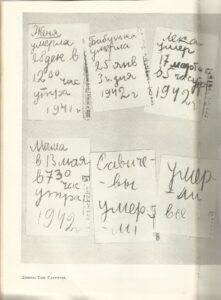 Женя
умерла
28 дек в
12 30 час
утра
1941 г
Бабушка
умерла
25 янв
3ч. дня
1942 г
Лека
умер
17 марта
в 5 час утр
1942 г
Мама
в 13 мая
в 7 30
час
утра
1942 г
Савиче-
вы
умер
ли
умер
ли
все
Дневник Тани Савичевой.